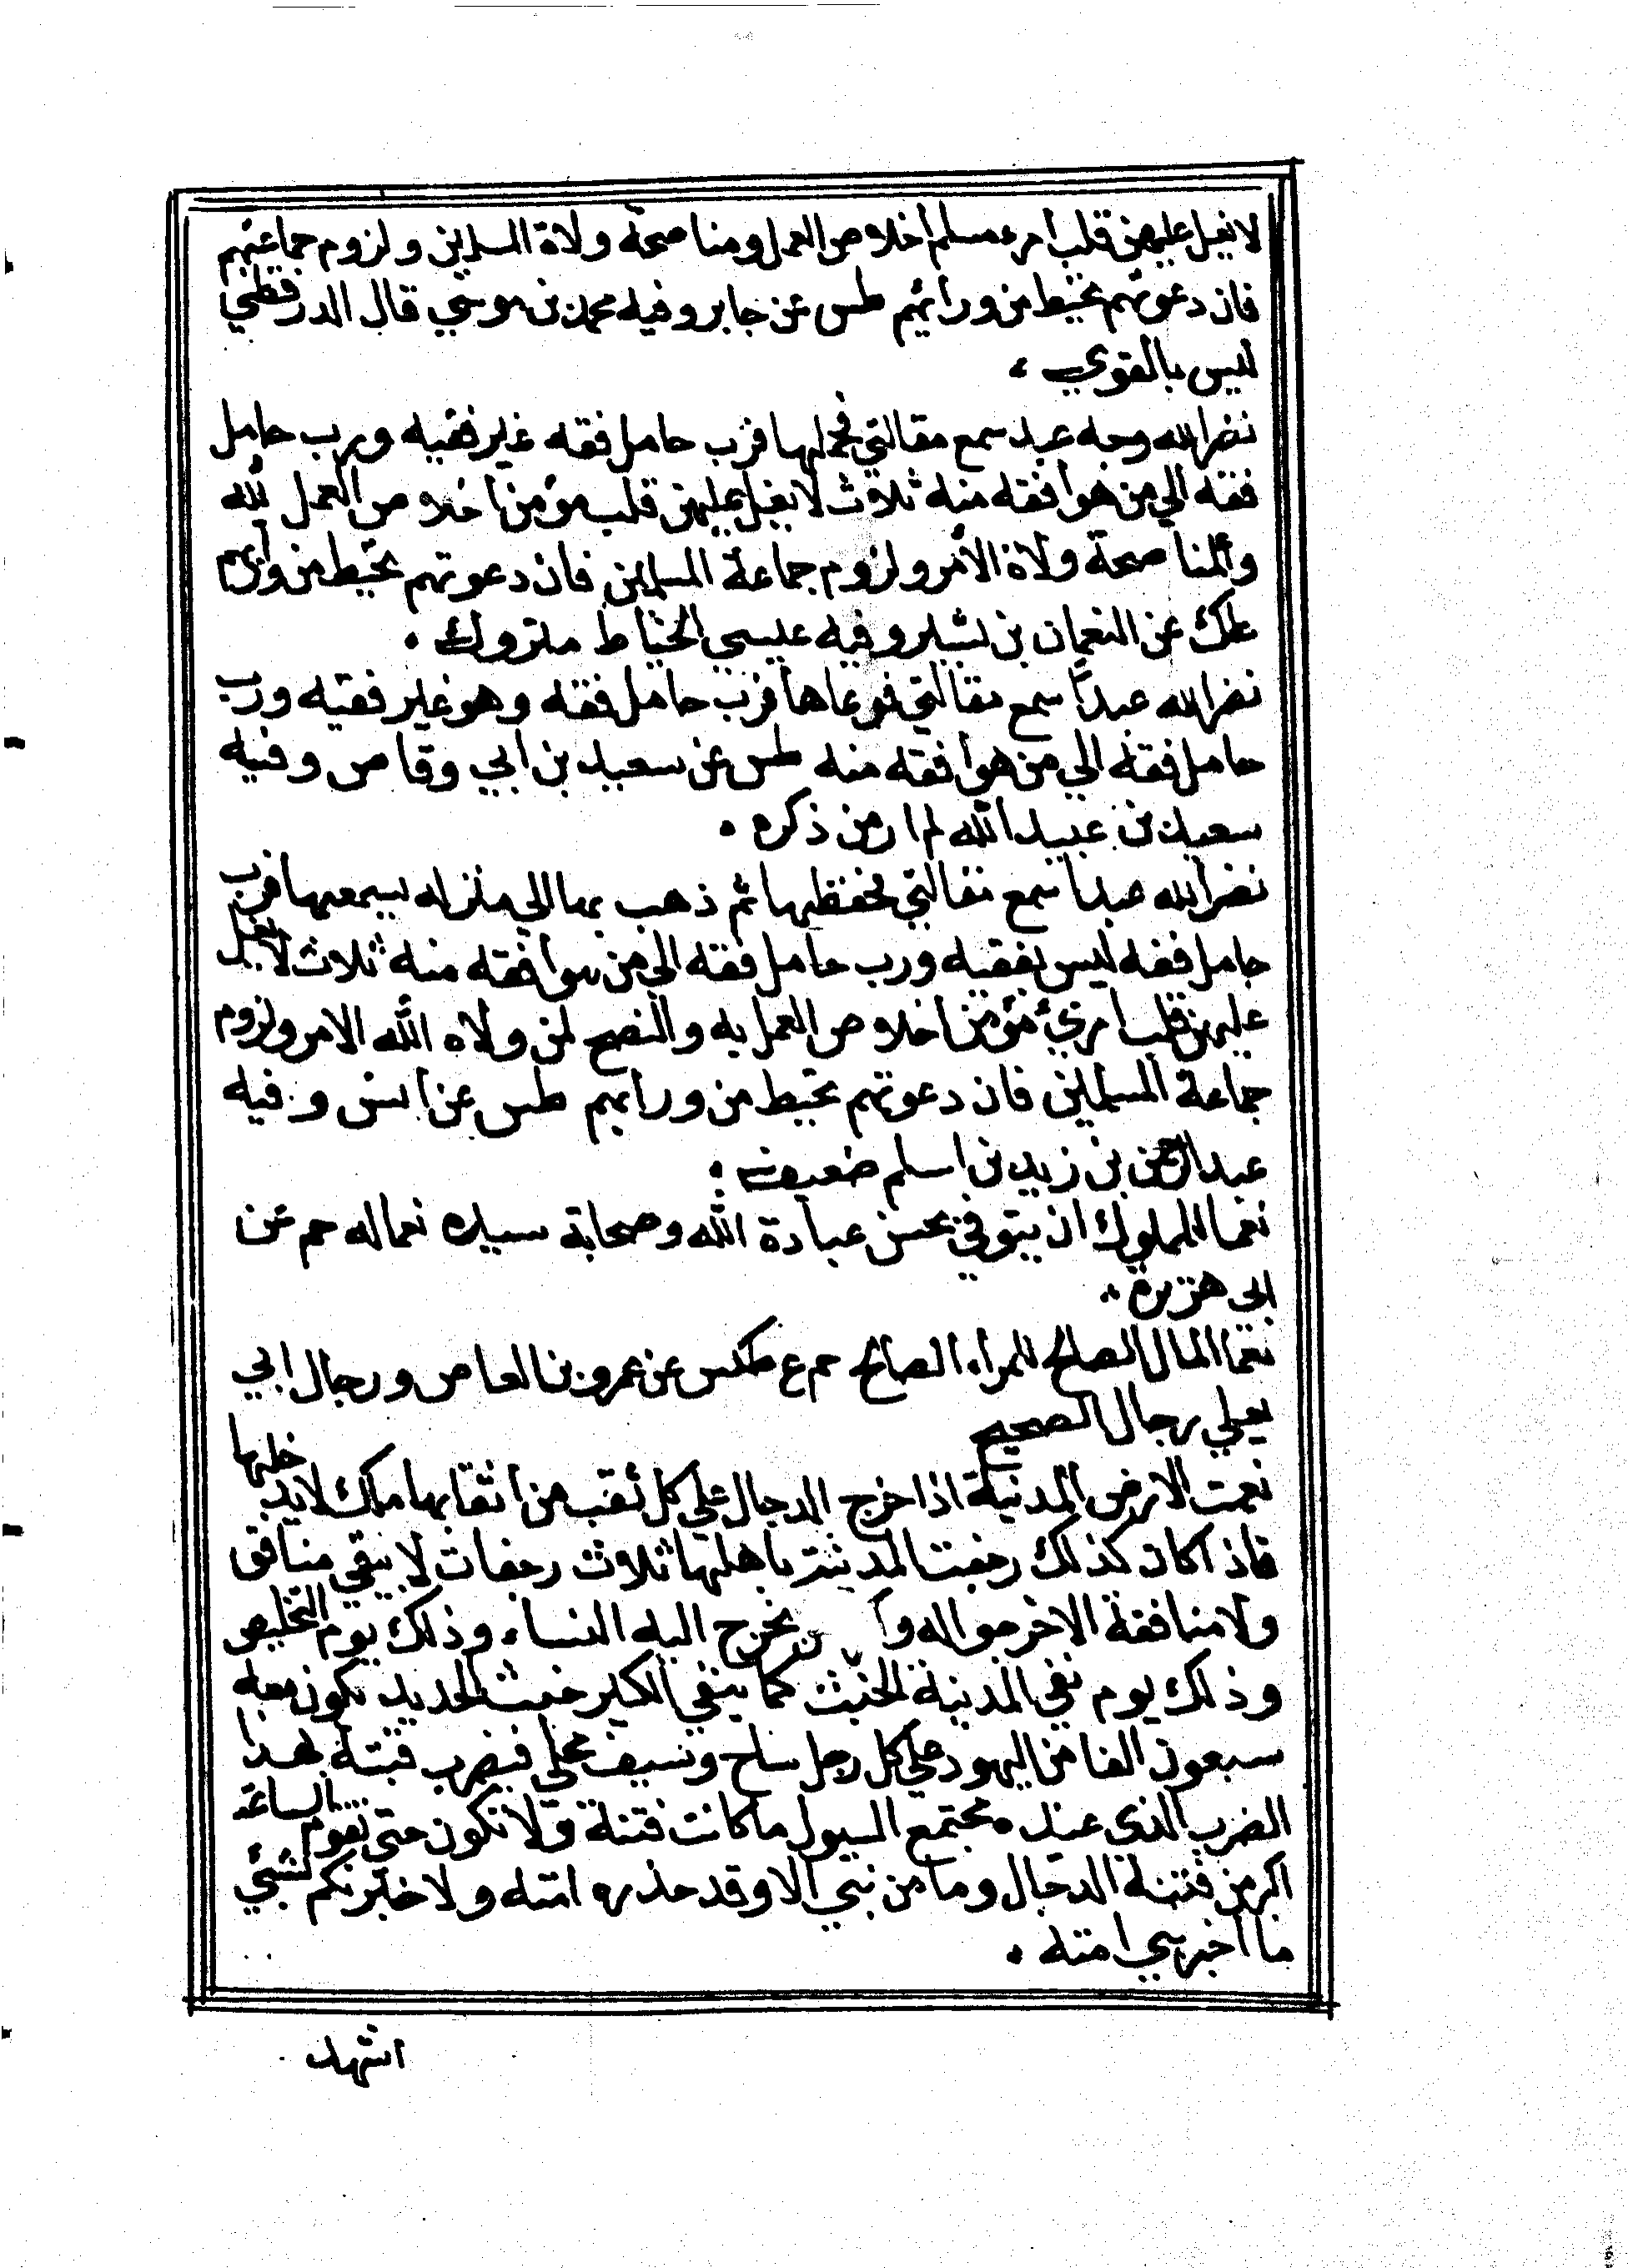 لا يغل عليهن قلب امرء مسلم اخلاص العمل ومناصحة ولاة المسلمين ولزوم جماعتهم
فان دعوتهم تحيط من ورائهم طس عن جابر وفيه محمد بن موسي قال الدرقطني
ليس بالقوي
نضر الله وجه عبد سمع مقالتي فحملها فرب حامل فقه غير فقيه ورب حامل
فقه الي من هو افقه منه ثلاث لا يغل عليهن قلب مؤمن اخلاص العمل لله
والمناصحة ولاة الأمر ولزوم جماعة المسلمين فان دعوتهم تحيط من ورائهم
طك عن النعمان بن بشير وفيه عيسي الخياط متروك .
نضر الله عبداً سمع مقالتي فوعاها فرب حامل فقه وهو غير فقيه ورب
حامل فقه الي من هو افقه منه طس عن سعيد بن ابي وقاص وفيه
سعيد بن عبيد الله لم ار من ذكره .
نضر الله عبدا سمع مقالتي فحفظها ثم ذهب بها الي منزله ليسمعها فرب
حامل فقه ليس بفقيه ورب حامل فقه الي من هو افقه منه ثلاث لا يغل
عليهن قلب امرئ مؤمن اخلاص العمل لله والنصح لمن ولاه الله الامر ولزوم
جماعة المسلمين فان دعوتهم تحيط من ورائهم طس عن انس وفيه
عبد الرحمن بن زيد بن اسلم ضعيف .
نعما للملوك ان يتوفي بحسن عبادة الله وصحابة سيده نعما له حم عن
ابي هريرة .
نعما المال الصالح للمرأ الصالح حم ع طكس عن عمرو بن العاص ورجال ابي
يعلي رجال الصحيح
نعمت الارض المدينة اذا خرج الدجال علي كل نقب من انقابها ملك لا يدخلها
فاذا كان كذلك رجفت المدينة باهلها ثلاث رجفات لا يبقي منافق
ولا منافقة الا خرجوا اليه و يخرج اليه النساء وذلك يوم التخليص
وذلك يوم تنفي المدينة الخبث كما ينفي الكير خبث الحديد يكون معه
سبعون الفا من اليهود علي كل رجل ساج وسيف محلي فيضرب قبته بهذا
الضرب الذي عنده مجتمع السيول ما كانت فتنة ولا تكون حتي تقوم الساعة
اكبر من فتنة الدجال وما من نبي الا وقد حذره امته ولا خبرنكم لشئ
ما اخبر نبي امته .
اشهد